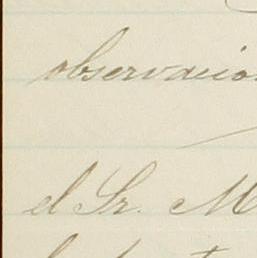 observacio
el Sr. M